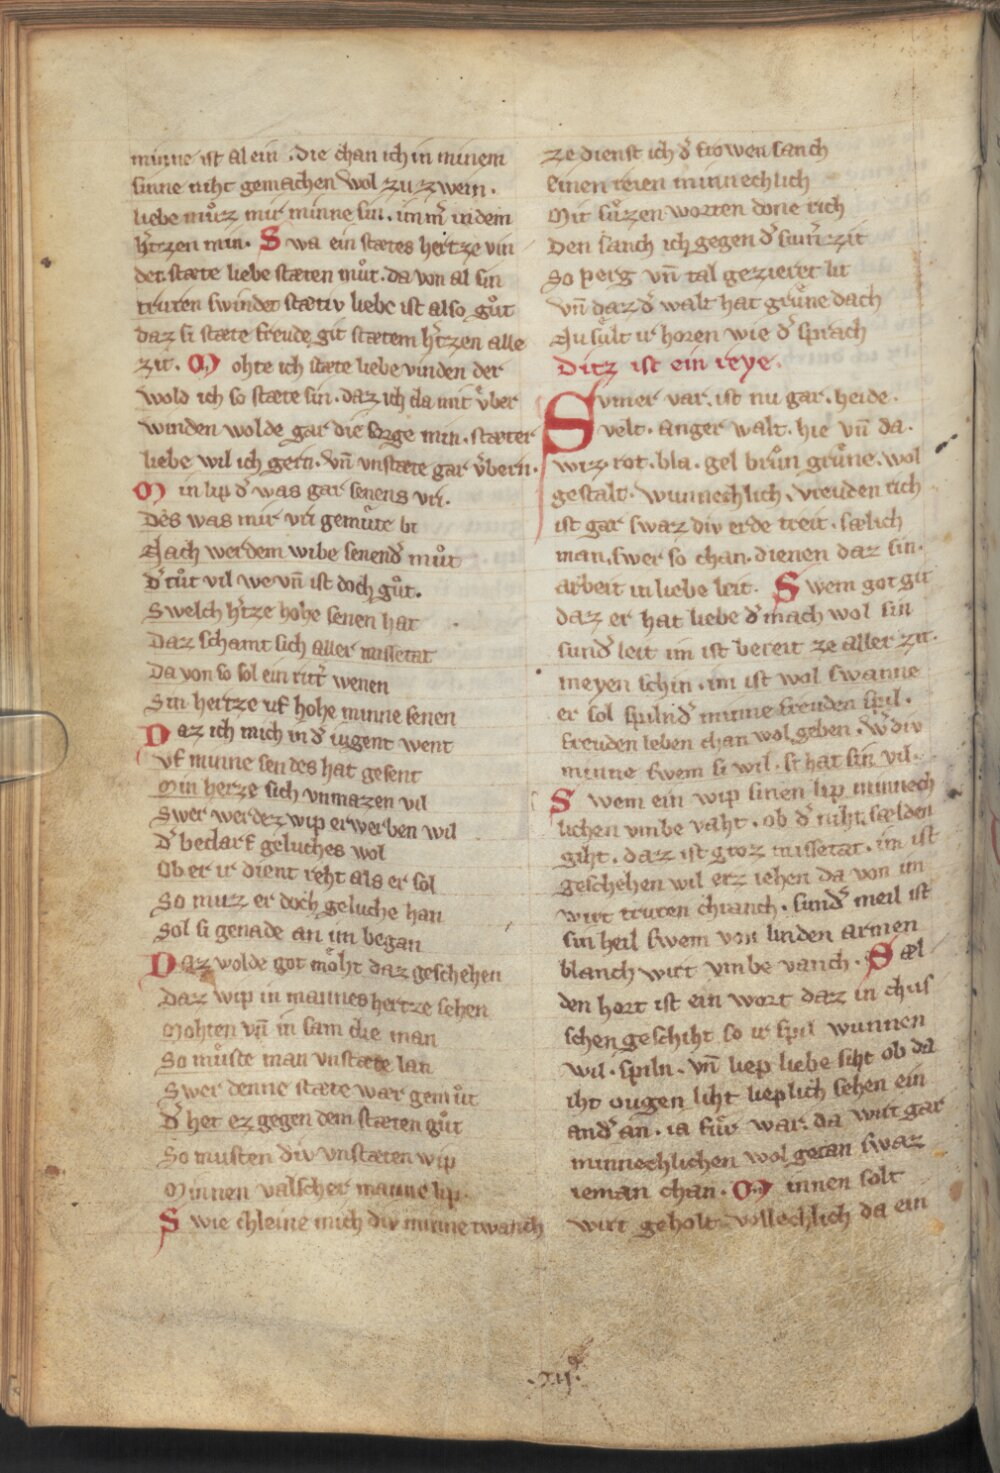 minne ist al ein . die chan ich in minem
sinne niht gemachen wol zu zwein .
liebe mv̊z mir minne sin . im̄ m̄ in dem
h̄tzen min . Swa ein stætes hertze vin
det . stæte liebe stæten mv̊t . da von al sin
truren swindet stætiv liebe ist also gv̊t
daz si stæte freude git stætem h̄tzen alle
zit . Mohte ich stæte liebe vinden der
wold ich so stæte sin . daz ich da mit v̊ber
winden wolde gar die sorge min . stæter
liebe wil ich gern . vn̄ vnstæte gar v̊bern .
Min lip d̄ was gar senens vri .
Des was mir vri gemv̊te bi
Nach werdem wibe senend̄ mv̊t
D̄ tv̊t vil we vn̄ ist doch gv̊t .
Swelch h̄tze hohe senen hat
Daz schamt sich aller missetat
Da von so sol ein ritt̄ wenen
Sin hertze vf hohe minne senen
Daz ich mich in d̄ iugent went
Vf minne sen des hat gesent
Min herze sich vnmazen vil
Swer werdez wip erwerben wil
D̄ bedarf geluches wol
Ob er ir dient reht als er sol
So muz er doch geluche han
Sol si genade an im began
Daz wolde got mo̊ht daz geschehen
Daz wip in mannes hertze sehen
Mohten vn̄ in sam die man
So mv̊ste man vnstæte lan
Swer denne stæte war gemv̊t
D̄ het ez gegen dem stæten gv̊t
So musten div vnstæten wip
Minnen valscher manne lip .
Swie chleine mich div minne twanch
ze dienst ich d̄ frowen sanch
Einen reien minnechlich
Mit sv̊zen worten done rich
Den sanch ich gegen d̄ sum̄zit
So perg vn̄ tal gezieret lit
Vn̄ daz d̄ walt hat grv̊ne dach
Nu sult ir horen wie d̄ sprach
Ditz ist ein reye .
Svmer var . ist nu gar . heide .
velt . anger walt . hie vn̄ da .
wiz . rot . bla . gel brv̊n grv̊ne . wol
gestalt . wunnechlich . vreuden rich
ist gar swaz div erde treit . sælich
man . swer so chan . dienen daz sin .
arbeit in liebe leit . Swem got git
daz er hat liebe d̄ mach wol sin
sund̄ leit im ist bereit ze aller zit .
meyen schin . im ist wol swanne
er sol spiln d̄ minne freuden spil .
freuden leben chan wol geben . w̄d div
minne swem si wil . si hat sin vil .
Swem ein wip sinen lip minnech
lichen vmbe vaht . ob d̄ niht sælden
giht . daz ist groz missetat . im ist
geschehen wil erz iehen da von im
wirt truren chranch . sund̄ meil ist
sin heil swem von linden armen
blanch wirt vmbe vanch . Sæl
den hort ist ein wort daz in chus
schen geschiht so ir spil wunnen
wil . spiln . vn̄ liep liebe siht ob da
iht ougen liht lieplich sehen ein
and̄ an . ia fv̊r war . da wirt gar
minnechlichen wol getan swaz
ieman chan . Minnen solt
wirt geholt vollechlich da ein
.xijꝰ.